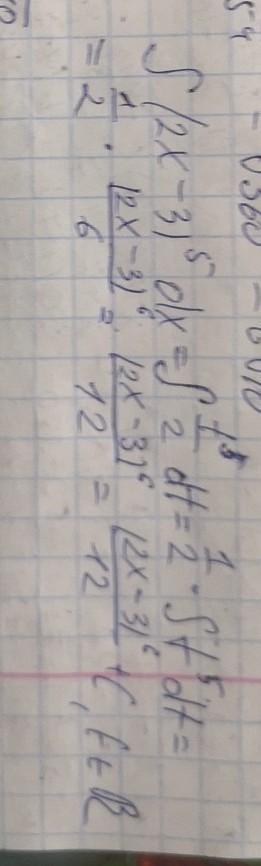 ∫ (2x-3)⁵ dx = ∫ t⁵/2 dt = 1/2 · ∫ t⁵ dt =
= 1/2 · (2x-3)⁶/6 = (2x-3)⁶/12 = (2x-3)⁶/12 + C, C∈ℝ